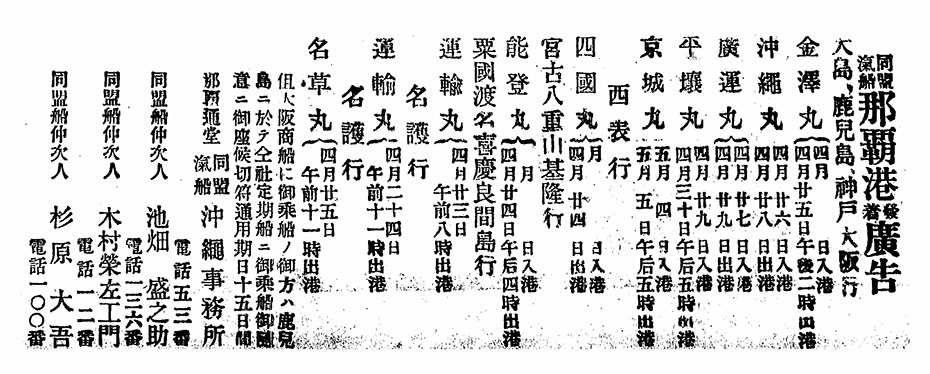 同盟汽船那覇港發着廣告
大島、鹿兒島、神戸大阪行
金澤丸
四月 日入港
四月廿五日午後二時出港
沖繩丸
四月廿六日入港
四月廿八日出港
廣運丸
四月廿七日入港
四月廿九日出港
平壤丸
四月廿九日入港
四月三十日午后五時出港
京城丸
五月 四日入港
五月 五日午后五時出港
西表行
四國丸
月 日入港
四月廿四日出港
宮古八重山基隆行
能登丸
月 日入港
四月廿四日午后四時出港
粟國渡名喜慶良間島行
運輸丸
四月廿三日
午前八時出港
名護行
運輸丸
四月二十四日
午前十一時出港
名護行
名草丸
四月廿五日
午前十一時出港
但大阪商船に御乘船ノ御方ハ鹿兒
島ニ於テ仝社定期船ニ御乘船御隨
意ニ御座候切符通用期日十五日間
那覇通堂 同盟汽船 沖繩事務所
電話五三番
同盟船仲次人 池畑盛之助
電話一三六番
同盟船仲次人 木村榮左工門
電話一一二番
同盟船仲次人 杉原大吾
電話一〇〇番